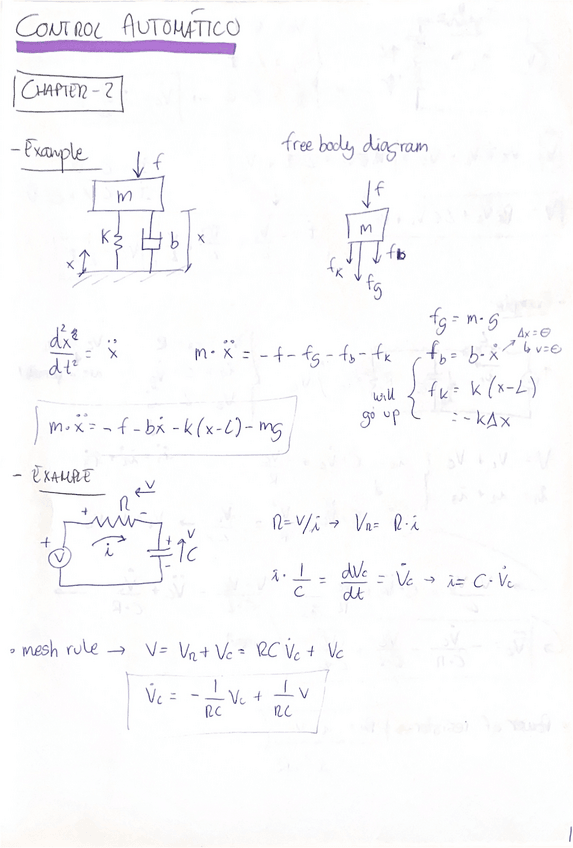 CONTROL AUTOMÁTICO
CHAPTER-2
- Example
free body diagram
f
m
K
b
x
x
f
m
fK
fb
fg
d²x²/dt² = ẍ
m·ẍ = -f - fg - fb - fK
fg = m·g
fb = b·ẋ
Δx=⊖
↳ v=⊖
fK = k(x-L)
= -kΔx
will
go up
m·ẍ = -f - bẋ - k(x-L) - mg
- EXAMPLE
V
R
+ -
+
V
i
+
-
V
C
R = V/i → VR = R·i
i · 1/C = dVc/dt = V̇c → i = C·V̇c
mesh rule → V = VR + Vc = RC V̇c + Vc
V̇c = - 1/RC Vc + 1/RC V
1